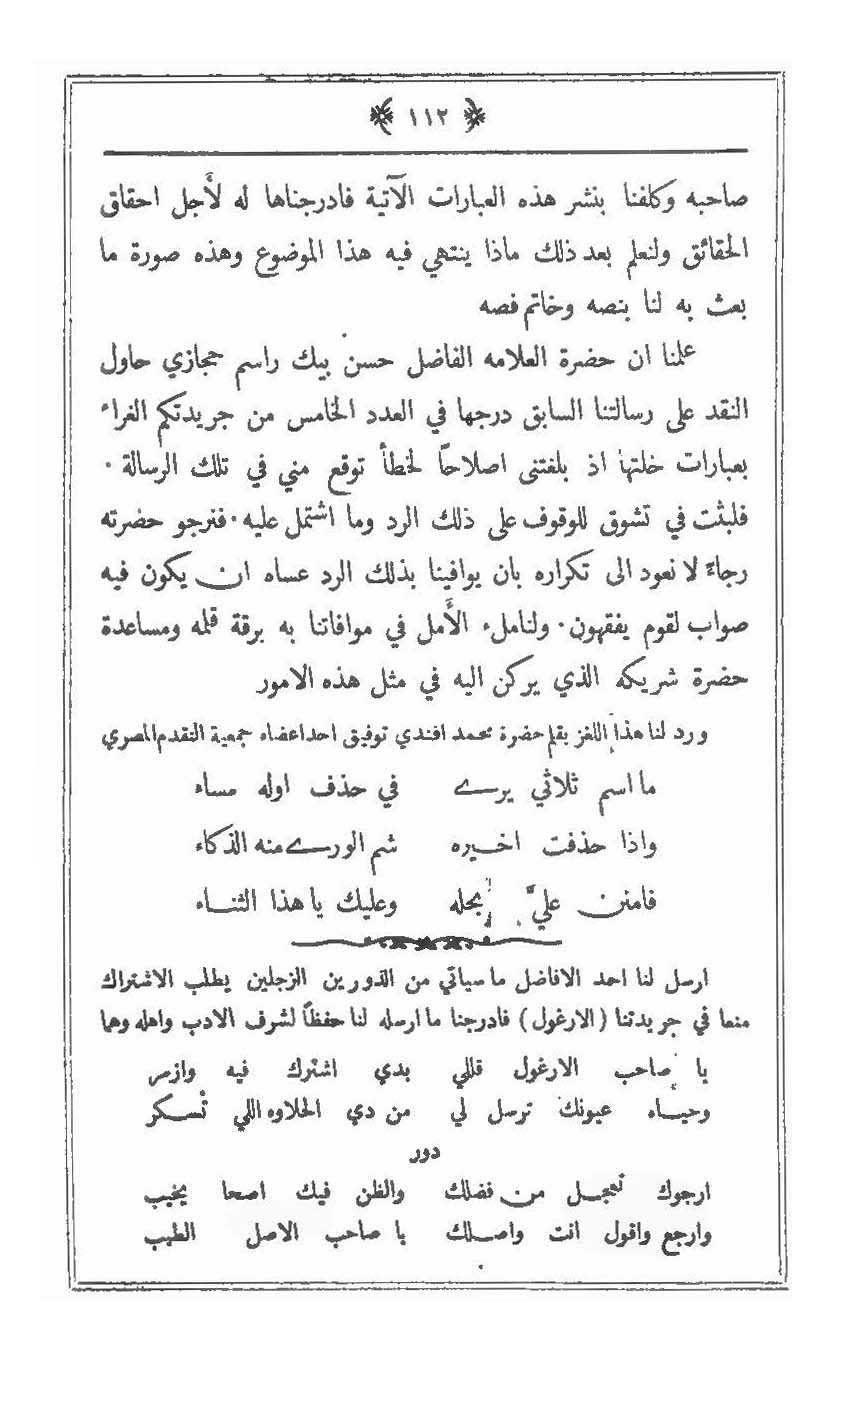 ١١٢
صاحبه وكلفنا بنشر هذه العبارات الآتية فادرجناها له لأجل احقاق
الحقائق ولنعلم بعد ذلك ماذا ينتهي فيه هذا الموضوع وهذه صورة ما
بعث به لنا بنصه وخاتم فصه
علمنا ان حضرة العلامه الفاضل حسن بيك راسم حجازي حاول
النقد على رسالتنا السابق درجها في العدد الخامس من جريدتكم الغراء
بعبارات خلتها اذ بلغتنى اصلاحاً لخطأ توقع مني في تلك الرسالة ٠
فلبثت في تشوق للوقوف على ذلك الرد وما اشتمل عليه ٠ فنرجو حضرته
رجاءً لا نعود الى تكراره بان يوافينا بذلك الرد عساه ان يكون فيه
صواب لقوم يفقهون ٠ ولنا ملء الأمل في موافاتنا به برقة قلمه ومساعدة
حضرة شريكه الذي يركن اليه في مثل هذه الامور
ورد لنا هذا اللغز بقلم حضرة محمد افندي توفيق احد اعضاء جمعية التقدم المصري
ما اسم ثلاثي يرے في حذف اوله مساء
واذا حذفت اخيره شم الورے منه الذكاء
فامنن عليَّ بحله وعليك يا هذا الثناء
ارسل لنا احد الافاضل ما سياتي من الدورين الزجلين يطلب الاشتراك
منها في جريدتنا (الارغول) فادرجنا ما ارسله لنا حفظاً لشرف الادب واهله وهما
يا صاحب الارغول قللي بدي اشترك فيه وازمر
وحياء عيونك ترسل لي من دي الحلاوه اللي تُسكر
دور
ارجوك تعجل من فضلك والظن فيك اصحا يخيب
وارجع واقول انت واصلك يا صاحب الاصل الطيب